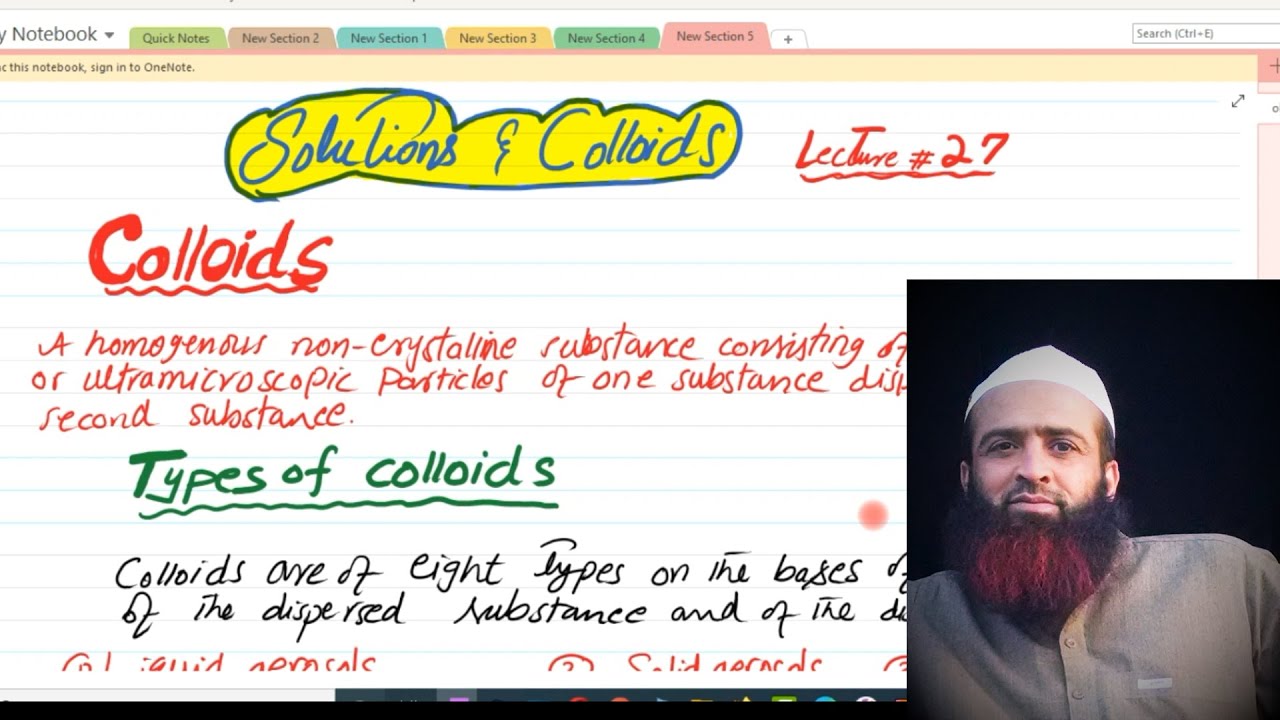 y Notebook
Quick Notes New Section 2 New Section 1 New Section 3 New Section 4 New Section 5 +
Search (Ctrl+E)
nc this notebook, sign in to OneNote.
Solutions & Colloids Lecture # 27
Colloids
A homogenous non-crystalline substance consisting of
or ultramicroscopic particles of one substance disp
second substance.
Types of colloids
Colloids are of eight Types on the bases of
of the dispersed substance and of the di
Liquid aerosols (2) Solid aerosols